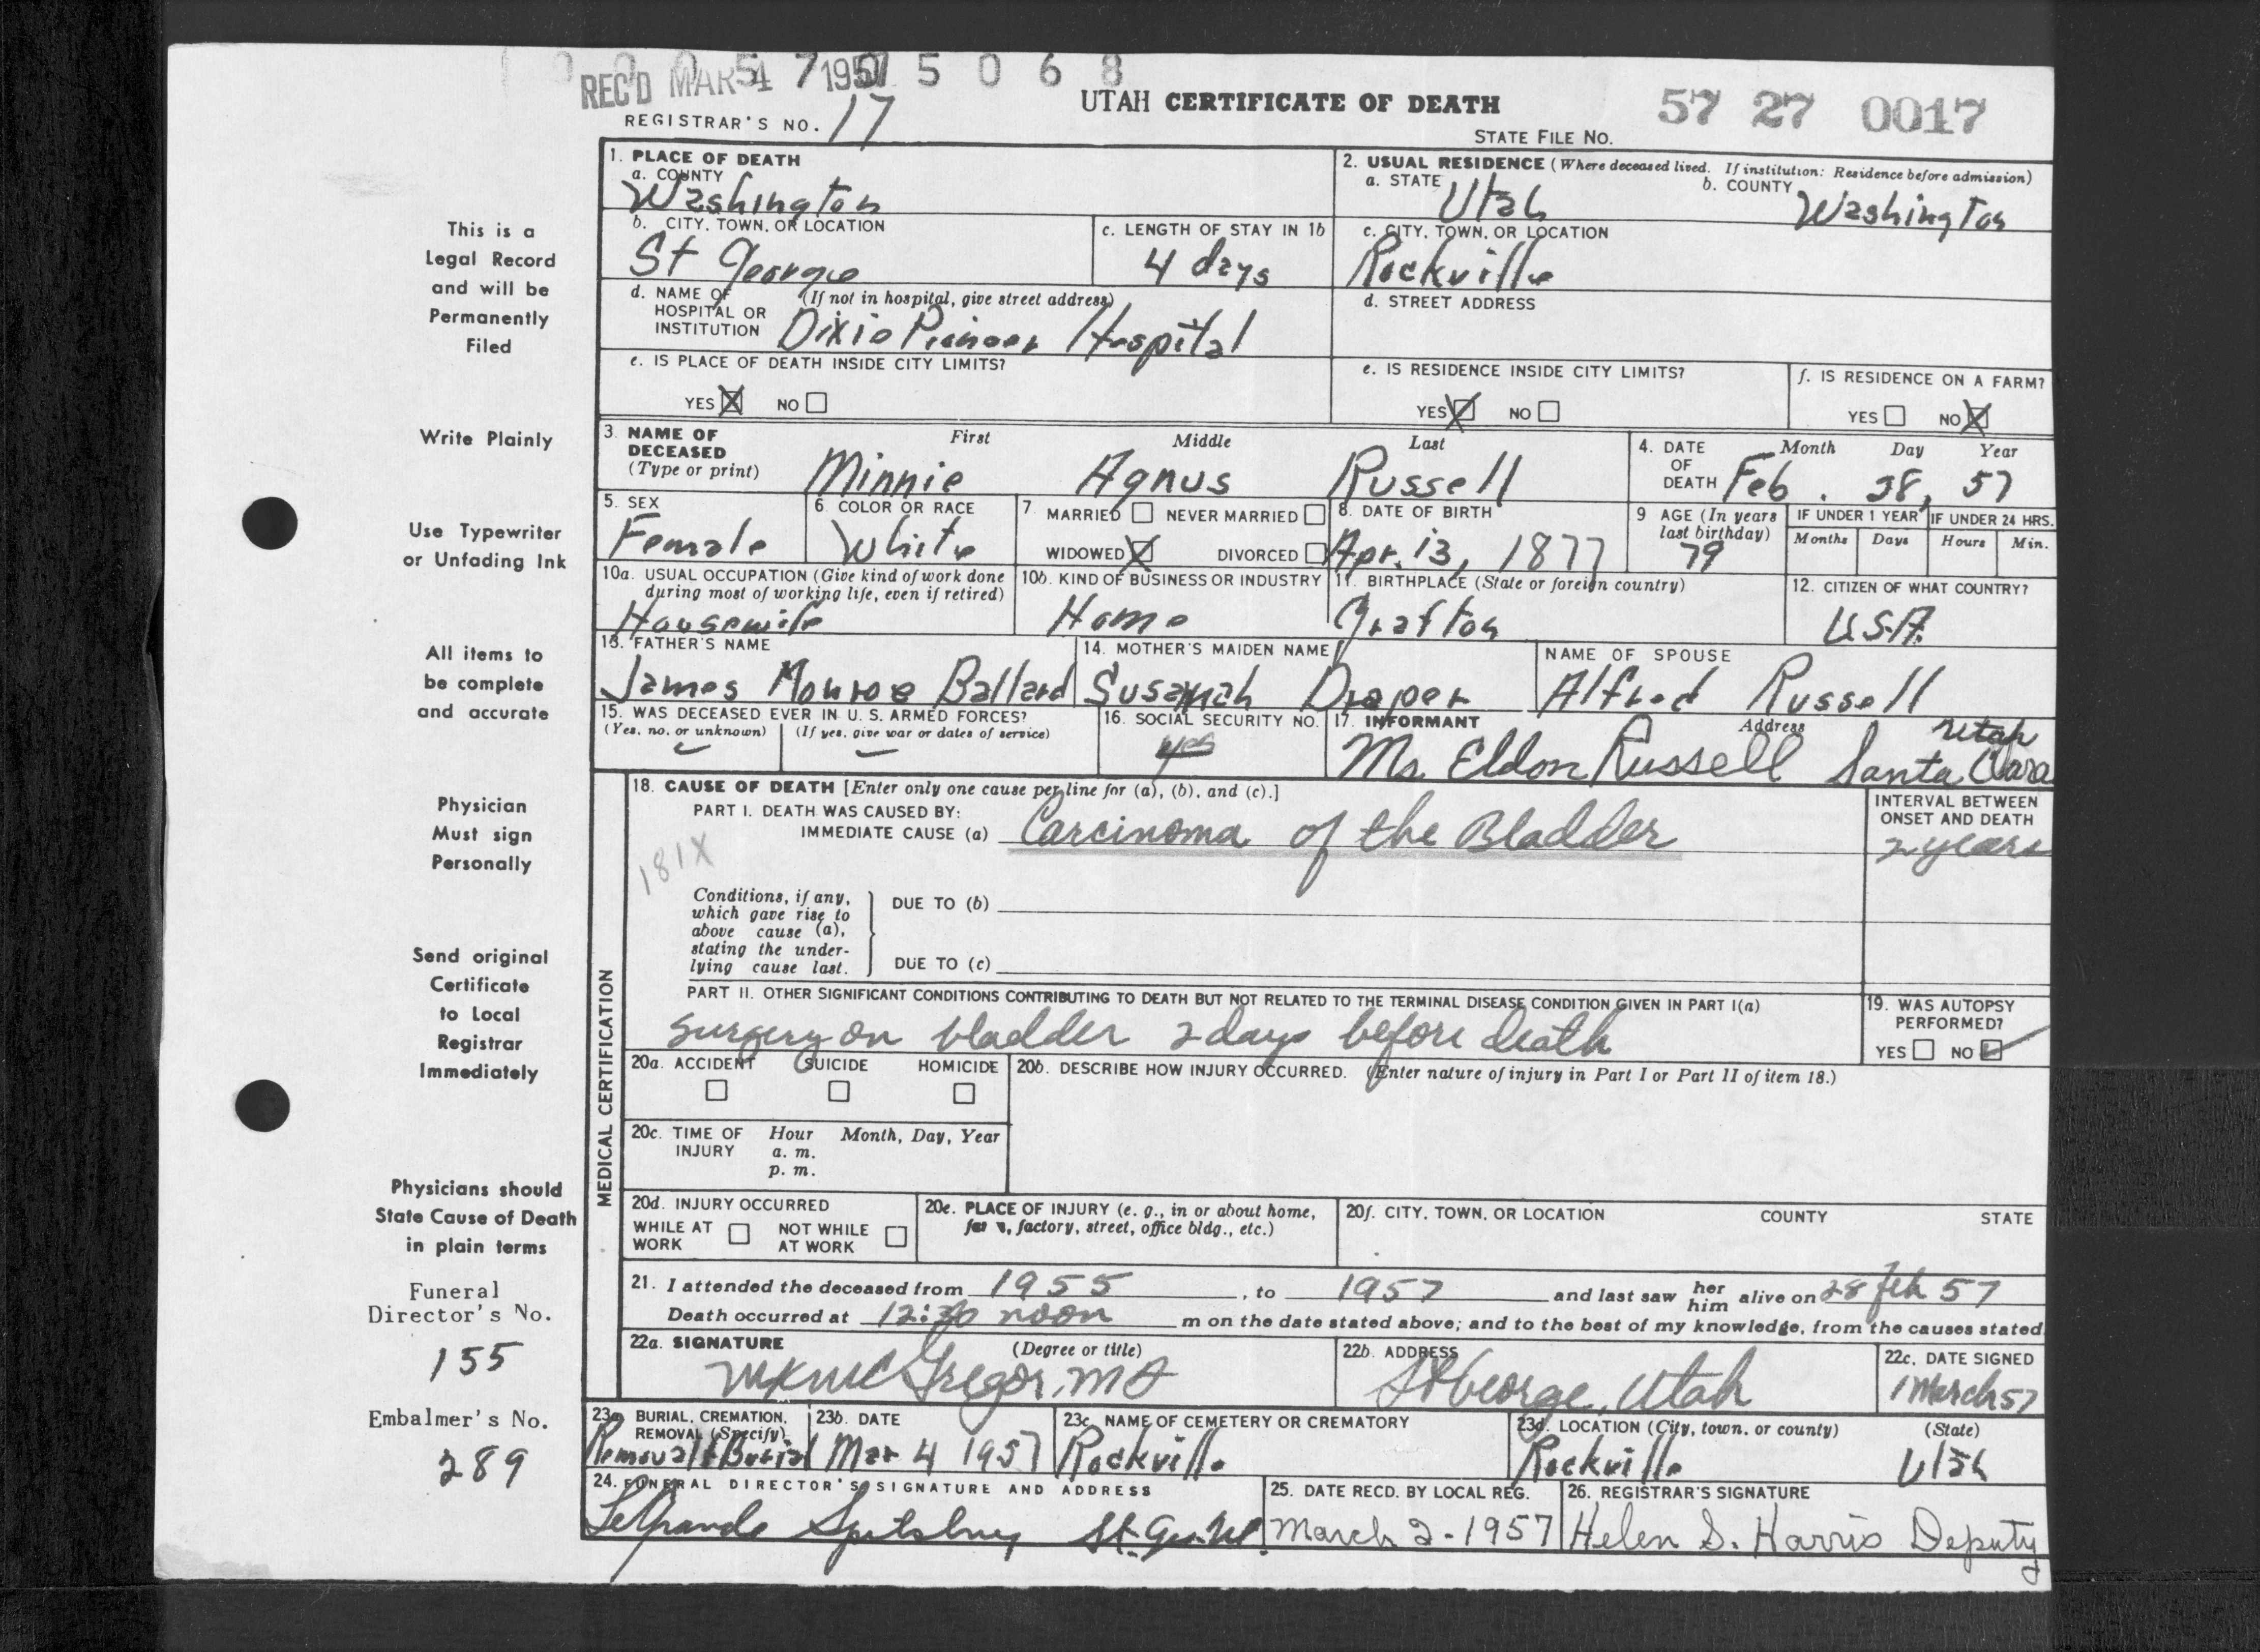 REC'D MAR 4 1957
UTAH CERTIFICATE OF DEATH
57 27 0017
REGISTRAR'S NO. 17
STATE FILE NO.
1. PLACE OF DEATH
a. COUNTY
Washington
2. USUAL RESIDENCE (Where deceased lived. If institution: Residence before admission)
a. STATE Utah
b. COUNTY Washington
b. CITY, TOWN, OR LOCATION
St George
c. LENGTH OF STAY IN 1b
4 days
c. CITY, TOWN, OR LOCATION
Rockville
d. NAME OF HOSPITAL OR INSTITUTION (If not in hospital, give street address)
Dixie Pioneer Hospital
d. STREET ADDRESS
e. IS PLACE OF DEATH INSIDE CITY LIMITS?
YES X NO
e. IS RESIDENCE INSIDE CITY LIMITS?
YES X NO
f. IS RESIDENCE ON A FARM?
YES NO X
3. NAME OF DECEASED (Type or print)
First Middle Last
Minnie Agnus Russell
4. DATE OF DEATH
Month Day Year
Feb. 28, 57
5. SEX
Female
6. COLOR OR RACE
White
7. MARRIED NEVER MARRIED
WIDOWED X DIVORCED
8. DATE OF BIRTH
Apr. 13, 1877
9 AGE (In years last birthday)
79
IF UNDER 1 YEAR
Months Days
IF UNDER 24 HRS.
Hours Min.
10a. USUAL OCCUPATION (Give kind of work done during most of working life, even if retired)
Housewife
10b. KIND OF BUSINESS OR INDUSTRY
Home
11. BIRTHPLACE (State or foreign country)
Grafton
12. CITIZEN OF WHAT COUNTRY?
U.S.A.
13. FATHER'S NAME
James Monroe Ballard
14. MOTHER'S MAIDEN NAME
Susannah Draper
NAME OF SPOUSE
Alfred Russell
15. WAS DECEASED EVER IN U. S. ARMED FORCES?
(Yes, no, or unknown) (If yes, give war or dates of service)
16. SOCIAL SECURITY NO.
yes
17. INFORMANT Address
Mr. Eldon Russell Santa Clara Utah
MEDICAL CERTIFICATION
18. CAUSE OF DEATH [Enter only one cause per line for (a), (b), and (c).]
PART I. DEATH WAS CAUSED BY:
IMMEDIATE CAUSE (a) Carcinoma of the Bladder
INTERVAL BETWEEN ONSET AND DEATH
2 years
181X
Conditions, if any, which gave rise to above cause (a), stating the underlying cause last.
DUE TO (b)
DUE TO (c)
PART II. OTHER SIGNIFICANT CONDITIONS CONTRIBUTING TO DEATH BUT NOT RELATED TO THE TERMINAL DISEASE CONDITION GIVEN IN PART I(a)
surgery on bladder 2 days before death
19. WAS AUTOPSY PERFORMED?
YES NO
20a. ACCIDENT SUICIDE HOMICIDE
20b. DESCRIBE HOW INJURY OCCURRED. (Enter nature of injury in Part I or Part II of item 18.)
20c. TIME OF INJURY Hour Month, Day, Year
a. m.
p. m.
20d. INJURY OCCURRED
WHILE AT WORK NOT WHILE AT WORK
20e. PLACE OF INJURY (e. g., in or about home, farm, factory, street, office bldg., etc.)
20f. CITY, TOWN, OR LOCATION COUNTY STATE
21. I attended the deceased from 1955, to 1957 and last saw her him alive on 28 Feb 57
Death occurred at 12:30 noon m on the date stated above; and to the best of my knowledge, from the causes stated.
22a. SIGNATURE (Degree or title)
McGregor, MD
22b. ADDRESS
St George, Utah
22c. DATE SIGNED
1 March 57
23a BURIAL, CREMATION, REMOVAL (Specify)
Removal & Burial
23b. DATE
Mar 4 1957
23c. NAME OF CEMETERY OR CREMATORY
Rockville
23d. LOCATION (City, town, or county) (State)
Rockville Utah
24. FUNERAL DIRECTOR'S SIGNATURE AND ADDRESS
St. Geo. Ut.
25. DATE RECD. BY LOCAL REG.
March 2-1957
26. REGISTRAR'S SIGNATURE
Helen S. Harris Deputy
This is a
Legal Record
and will be
Permanently
Filed
Write Plainly
Use Typewriter
or Unfading Ink
All items to
be complete
and accurate
Physician
Must sign
Personally
Send original
Certificate
to Local
Registrar
Immediately
Physicians should
State Cause of Death
in plain terms
Funeral
Director's No.
155
Embalmer's No.
289